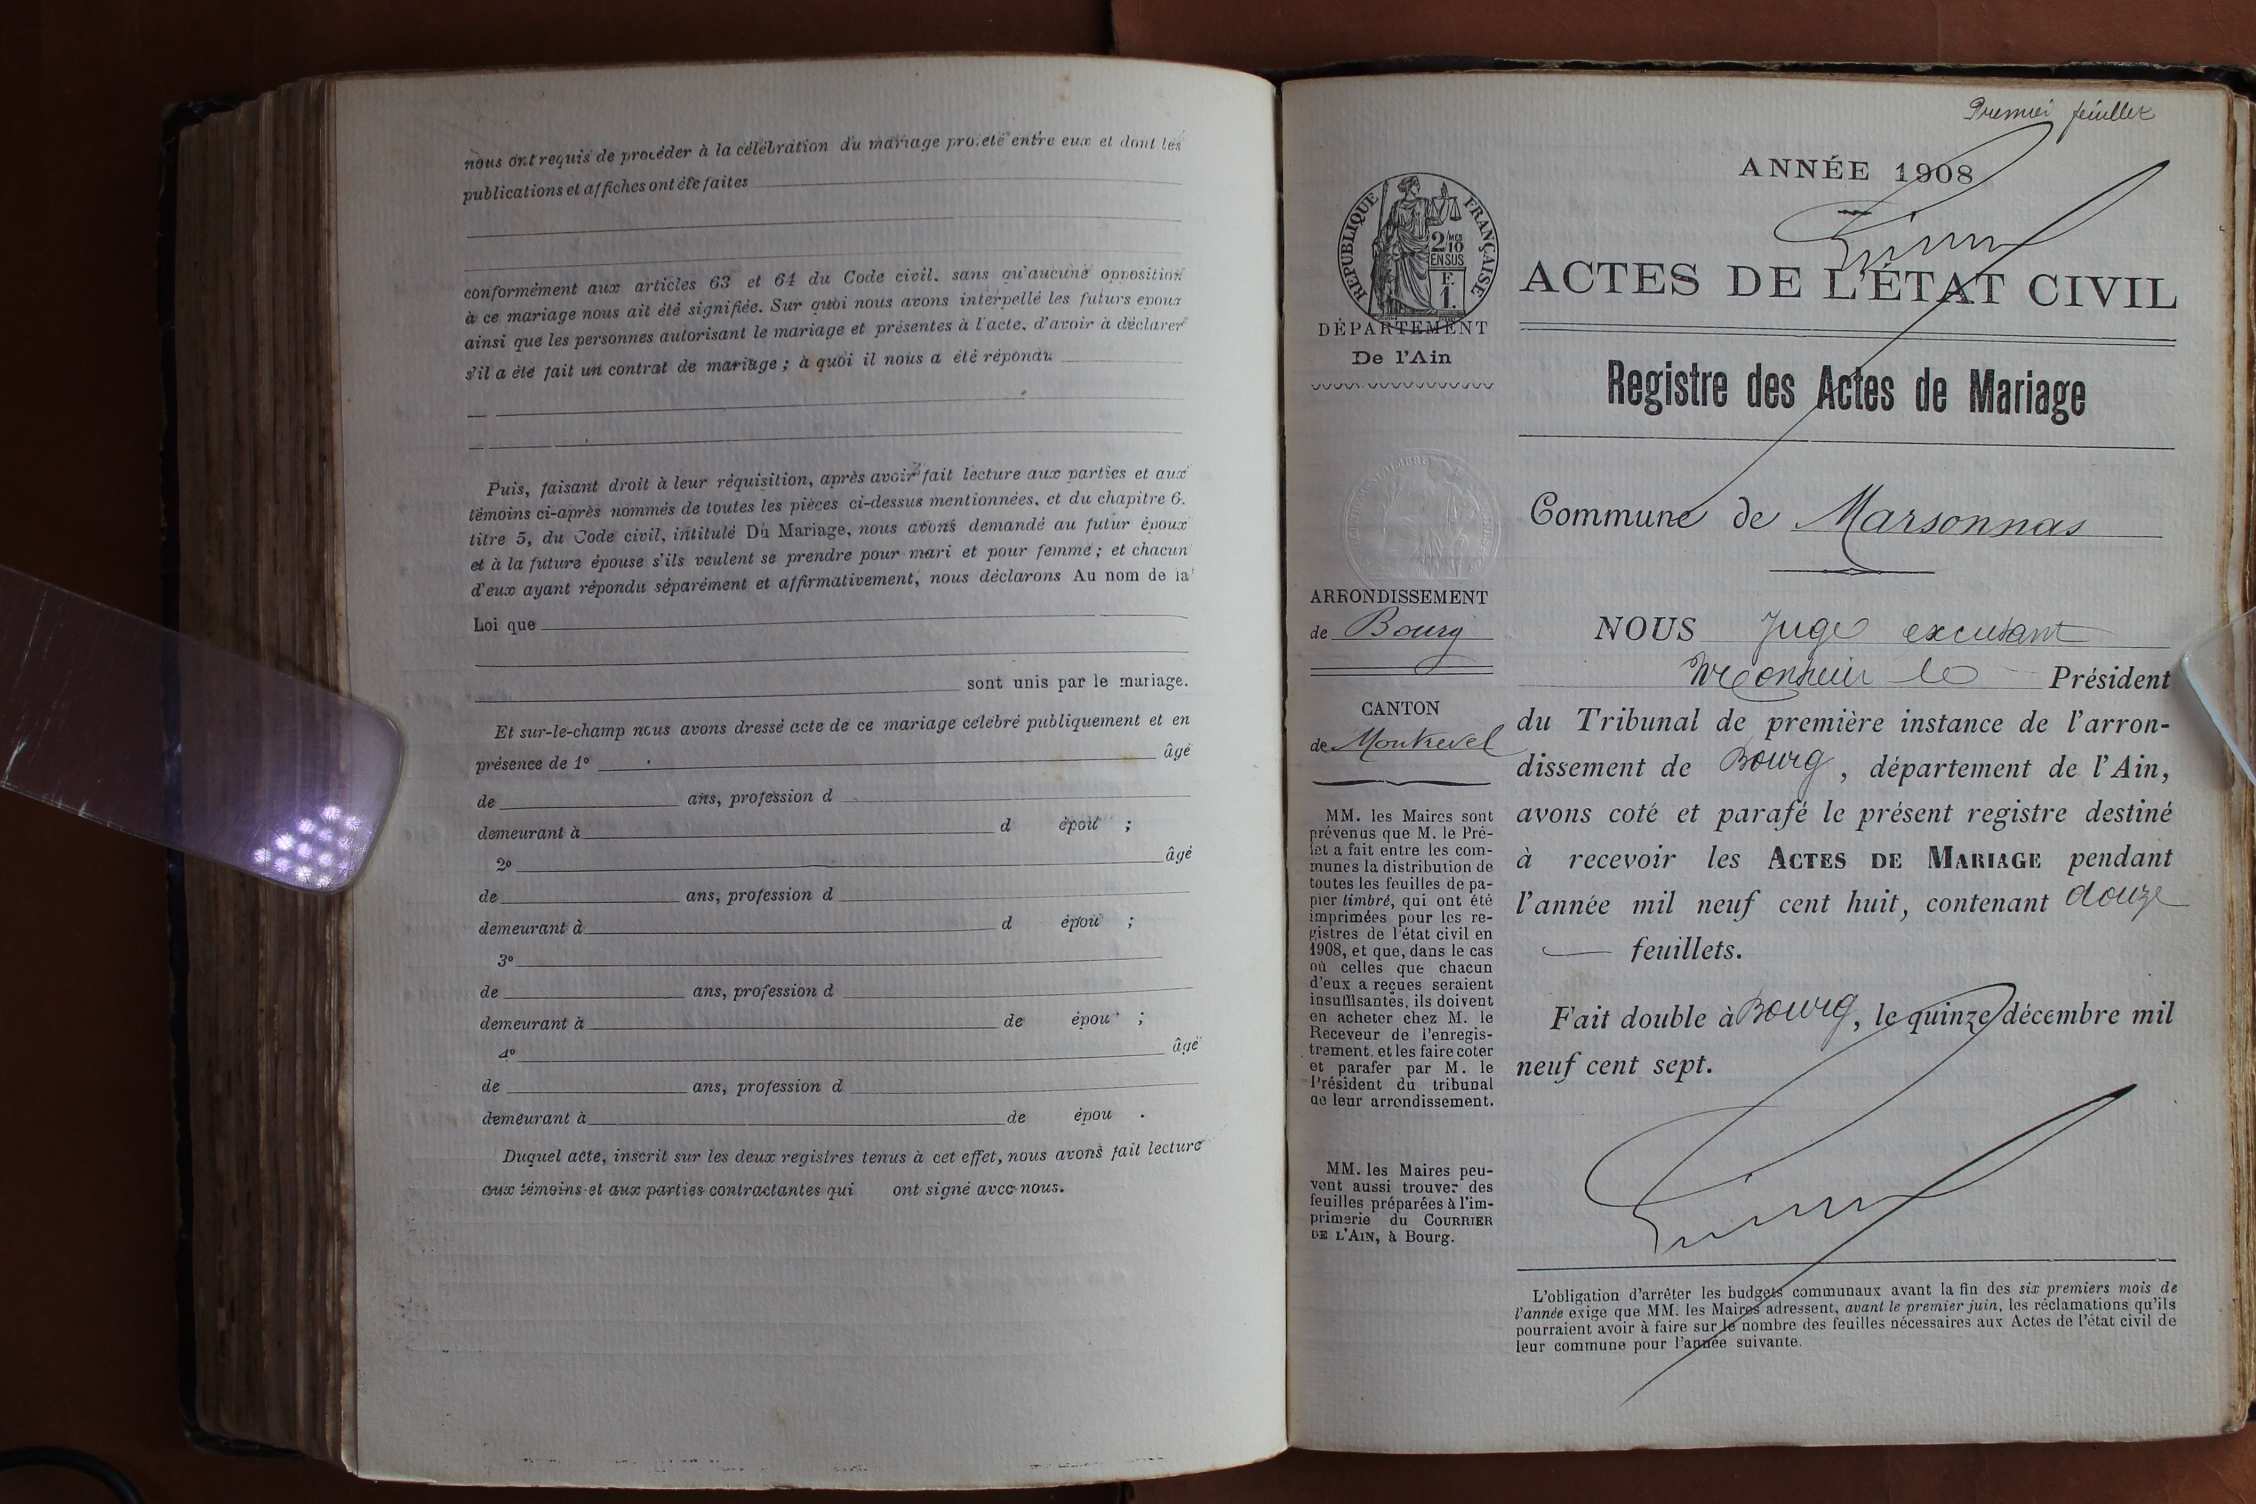 nous ont requis de procéder à la célébration du mariage projeté entre eux et dont les
publications et affiches ont été faites
conformément aux articles 63 et 64 du Code civil, sans qu'aucune opposition
à ce mariage nous ait été signifiée. Sur quoi nous avons interpellé les futurs époux
ainsi que les personnes autorisant le mariage et présentes à l'acte, d'avoir à déclarer
s'il a été fait un contrat de mariage ; à quoi il nous a été répondu
Puis, faisant droit à leur réquisition, après avoir fait lecture aux parties et aux
témoins ci-après nommés de toutes les pièces ci-dessus mentionnées, et du chapitre 6,
titre 5, du Code civil, intitulé Du Mariage, nous avons demandé au futur époux
et à la future épouse s'ils veulent se prendre pour mari et pour femme ; et chacun
d'eux ayant répondu séparément et affirmativement, nous déclarons Au nom de la
Loi que
sont unis par le mariage.
Et sur-le-champ nous avons dressé acte de ce mariage célébré publiquement et en
présence de 1° âgé
de ans, profession d
demeurant à d épou ;
2° âgé
de ans, profession d
demeurant à d épou ;
3°
de ans, profession d
demeurant à de épou ;
4° âgé
de ans, profession d
demeurant à de épou .
Duquel acte, inscrit sur les deux registres tenus à cet effet, nous avons fait lecture
aux témoins et aux parties contractantes qui ont signé avec nous.
Premier feuillet
ANNÉE 1908
RÉPUBLIQUE FRANÇAISE
2/10
EN SUS
F.
1.
DÉPARTEMENT
De l'Ain
ACTES DE L'ÉTAT CIVIL
Registre des Actes de Mariage
Commune de Marsonnas
ARRONDISSEMENT
de Bourg
CANTON
de Montrevel
MM. les Maires sont
prévenus que M. le Pré-
fet a fait entre les com-
munes la distribution de
toutes les feuilles de pa-
pier timbré, qui ont été
imprimées pour les re-
gistres de l'état civil en
1908, et que, dans le cas
où celles que chacun
d'eux a reçues seraient
insuffisantes, ils doivent
en acheter chez M. le
Receveur de l'enregis-
trement, et les faire coter
et parafer par M. le
Président du tribunal
de leur arrondissement.
MM. les Maires peu-
vent aussi trouver des
feuilles préparées à l'im-
primerie du COURRIER
DE L'AIN, à Bourg.
NOUS Juge excusant
Monsieur le Président
du Tribunal de première instance de l'arron-
dissement de Bourg, département de l'Ain,
avons coté et parafé le présent registre destiné
à recevoir les ACTES DE MARIAGE pendant
l'année mil neuf cent huit, contenant douze
feuillets.
Fait double à Bourg, le quinze décembre mil
neuf cent sept.
L'obligation d'arrêter les budgets communaux avant la fin des six premiers mois de
l'année exige que MM. les Maires adressent, avant le premier juin, les réclamations qu'ils
pourraient avoir à faire sur le nombre des feuilles nécessaires aux Actes de l'état civil de
leur commune pour l'année suivante.